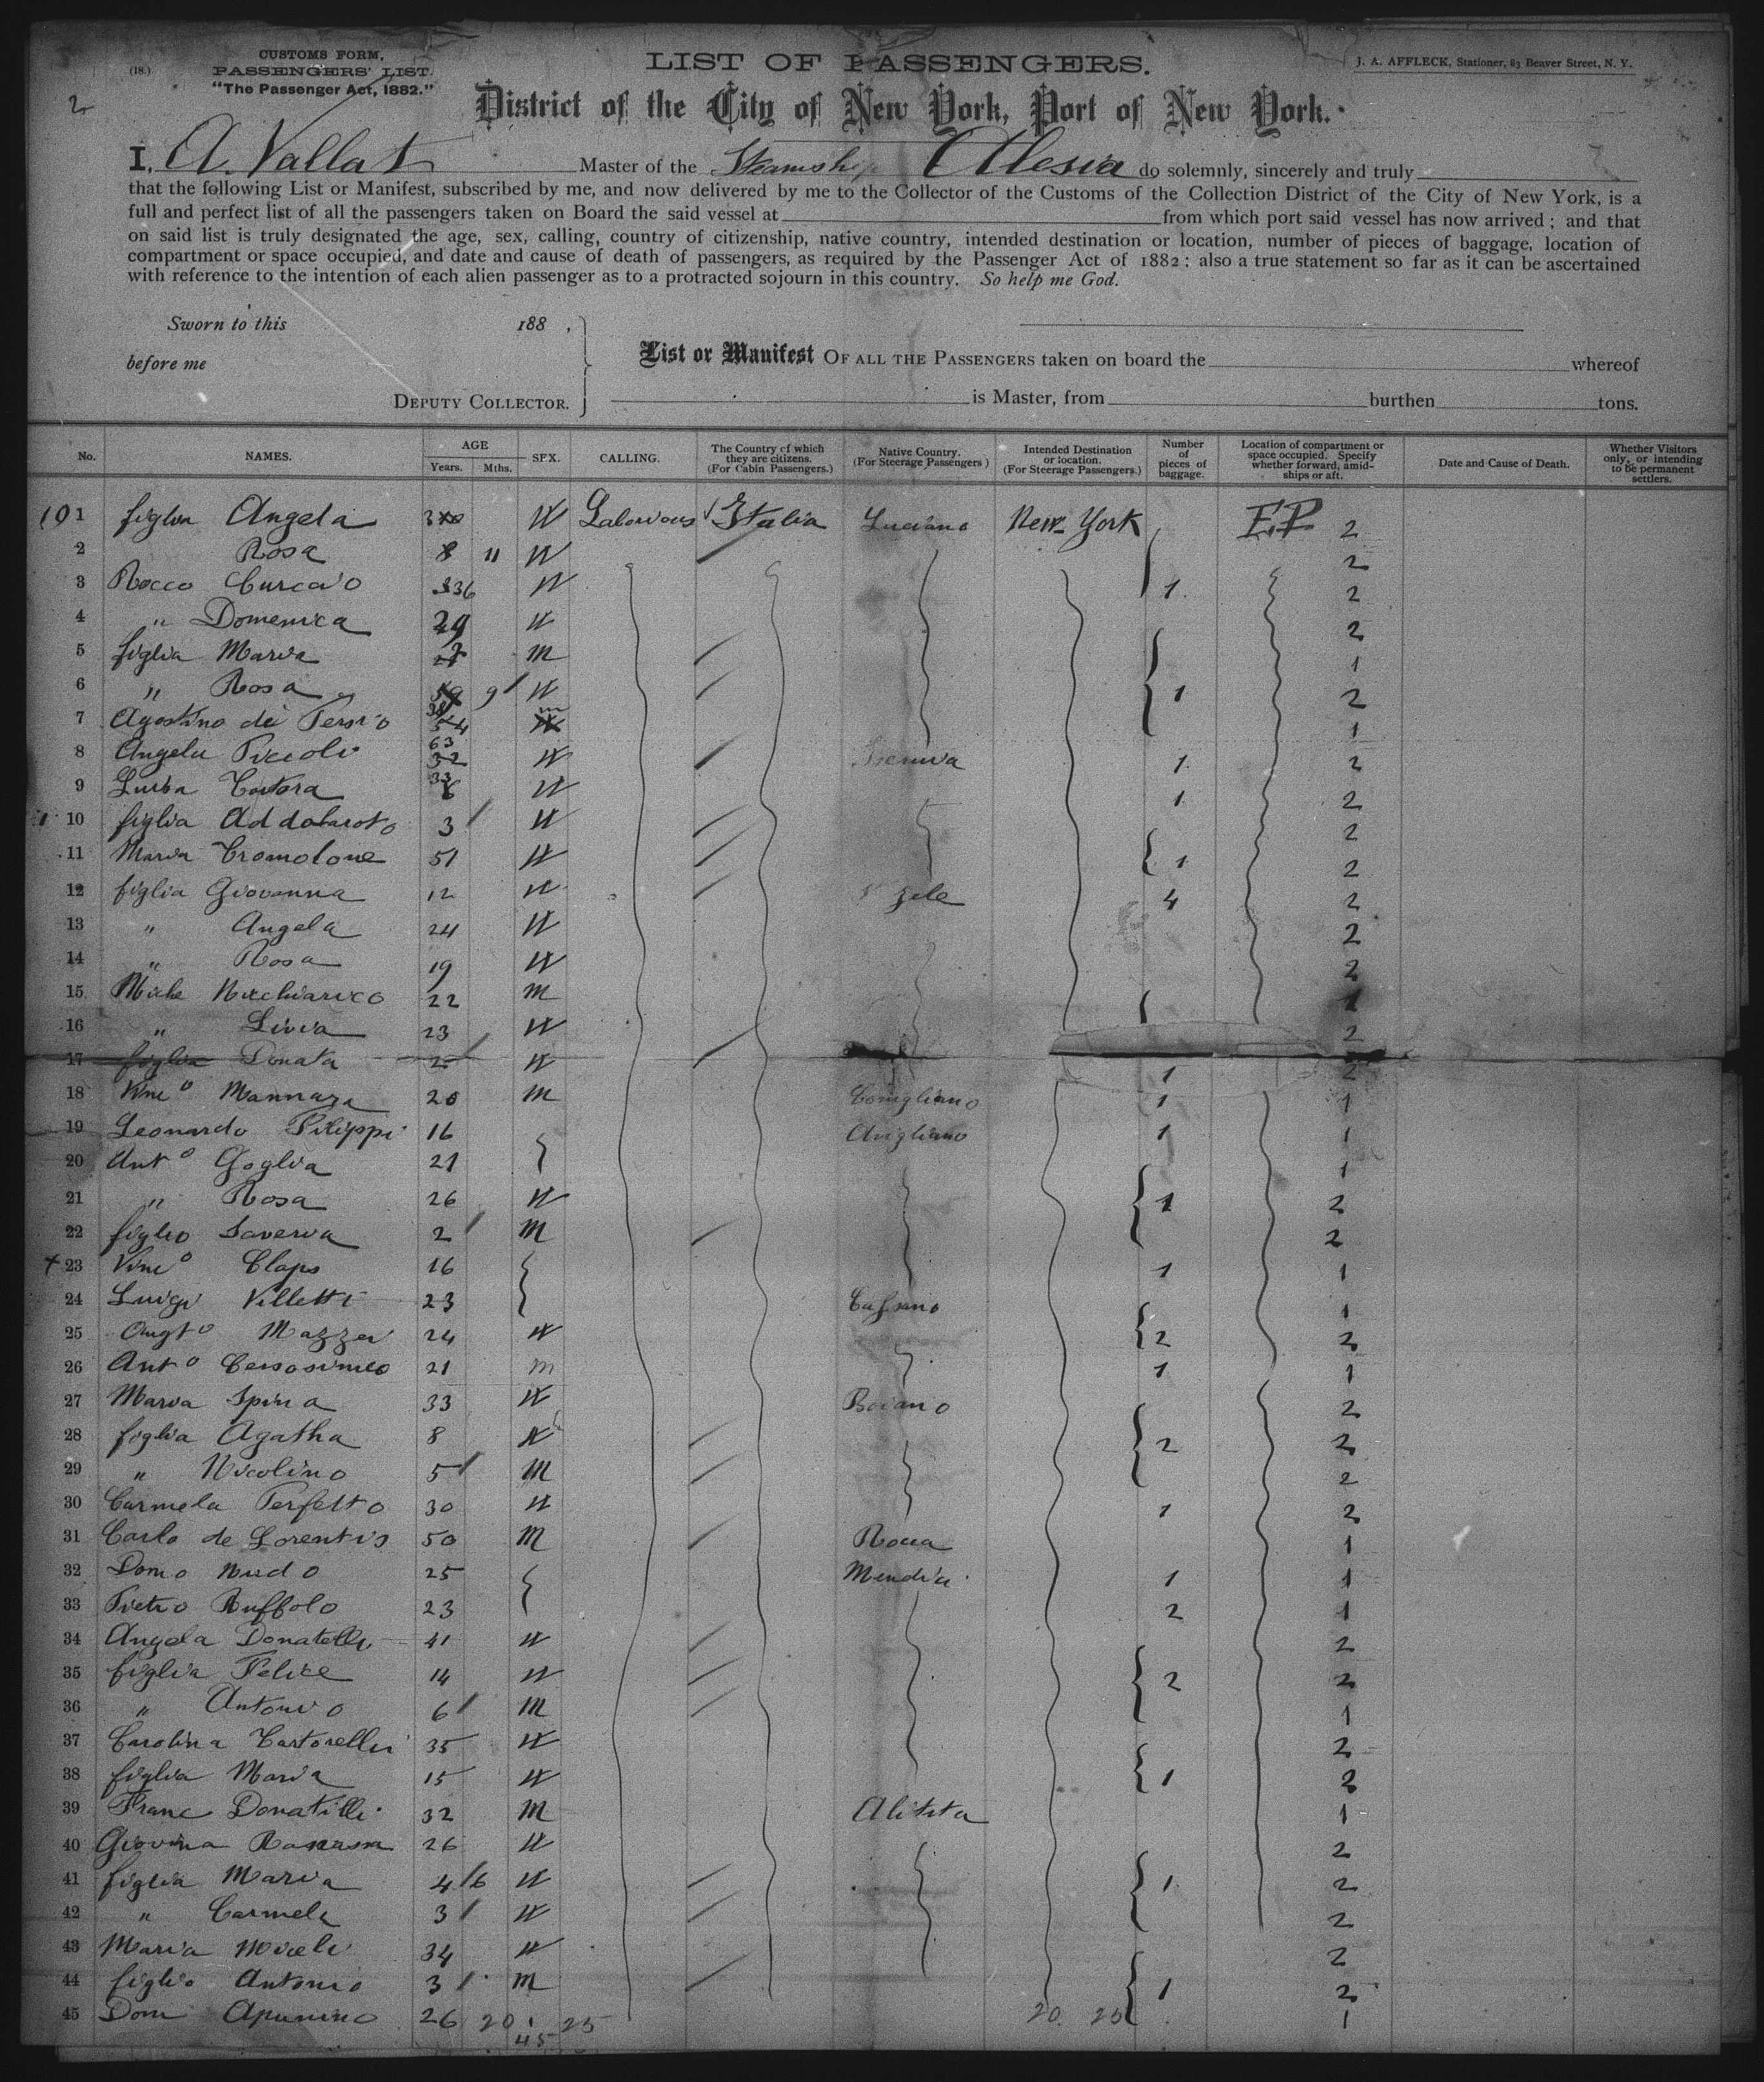 (18.)
CUSTOMS FORM,
PASSENGERS' LIST.
"The Passenger Act, 1882."
2
LIST OF PASSENGERS.
J. A. AFFLECK, Stationer, 83 Beaver Street, N. Y.
District of the City of New York, Port of New York.
I, A. Vallat Master of the Steamship Alesia do solemnly, sincerely and truly
that the following List or Manifest, subscribed by me, and now delivered by me to the Collector of the Customs of the Collection District of the City of New York, is a
full and perfect list of all the passengers taken on Board the said vessel at from which port said vessel has now arrived; and that
on said list is truly designated the age, sex, calling, country of citizenship, native country, intended destination or location, number of pieces of baggage, location of
compartment or space occupied, and date and cause of death of passengers, as required by the Passenger Act of 1882; also a true statement so far as it can be ascertained
with reference to the intention of each alien passenger as to a protracted sojourn in this country. So help me God.
Sworn to this 188 ,
before me
DEPUTY COLLECTOR.
List or Manifest OF ALL THE PASSENGERS taken on board the whereof
is Master, from burthen tons.
No. NAMES. AGE Years. Mths. SEX. CALLING. The Country of which they are citizens. (For Cabin Passengers.) Native Country. (For Steerage Passengers) Intended Destination or location. (For Steerage Passengers.) Number of pieces of baggage. Location of compartment or space occupied. Specify whether forward, amidships or aft. Date and Cause of Death. Whether Visitors only, or intending to be permanent settlers.
1 Angela W Italia Luciano New-York EP 2
2 Rosa 8 11 W 2
3 Rocco 36 W 1 2
4 " Domenica 29 W 2
5 figlia Maria M 1
6 " Rosa 9 W 1 2
7 Agostino di 1
8 Angela Piccoli 63 W 1 2
9 33 W 1 2
10 figlia 3 W 2
11 Maria 51 W 1 2
12 figlia Giovanna 12 W 4 2
13 " Angela 24 W 2
14 " Rosa 19 W 2
15 22 M 1
16 " Livia 23 W 2
17 figlia Donata 2 W 1 2
18 Vinc° Mannara 20 M Conigliano 1 1
19 Leonardo Filippi 16 Avigliano 1 1
20 Ant° Goglia 21 1
21 " Rosa 26 W 1 2
22 figlio Saveria 2 M 2
23 Vinc° Claps 16 1 1
24 Luigi Villetti 23 Cassano 1
25 Mazzei 24 W 2 2
26 Ant° Cersosimo 21 M 1 1
27 Maria Spina 33 W Boiano 2
28 figlia Agatha 8 W 2 2
29 " Nicolino 5 M 2
30 Carmela Perfetto 30 W 1 2
31 Carlo de Lorentis 50 M Rocca 1
32 Dom° Nudo 25 1 1
33 Pietro Ruffolo 23 2 1
34 Angela Donatelli 41 W 2
35 figlia Felice 14 W 2 2
36 " Antonio 6 M 1
37 Carolina Tartorelli 35 W 2
38 figlia Maria 15 W 1 2
39 Franc Donatilli 32 M 1
40 Giovina 26 W 2
41 figlia Maria 4 6 W 1 2
42 " Carmela 3 W 2
43 Maria Miceli 34 W 2
44 figlio Antonio 3 M 1 2
45 Dom 26 20 25 20. 25 1
45